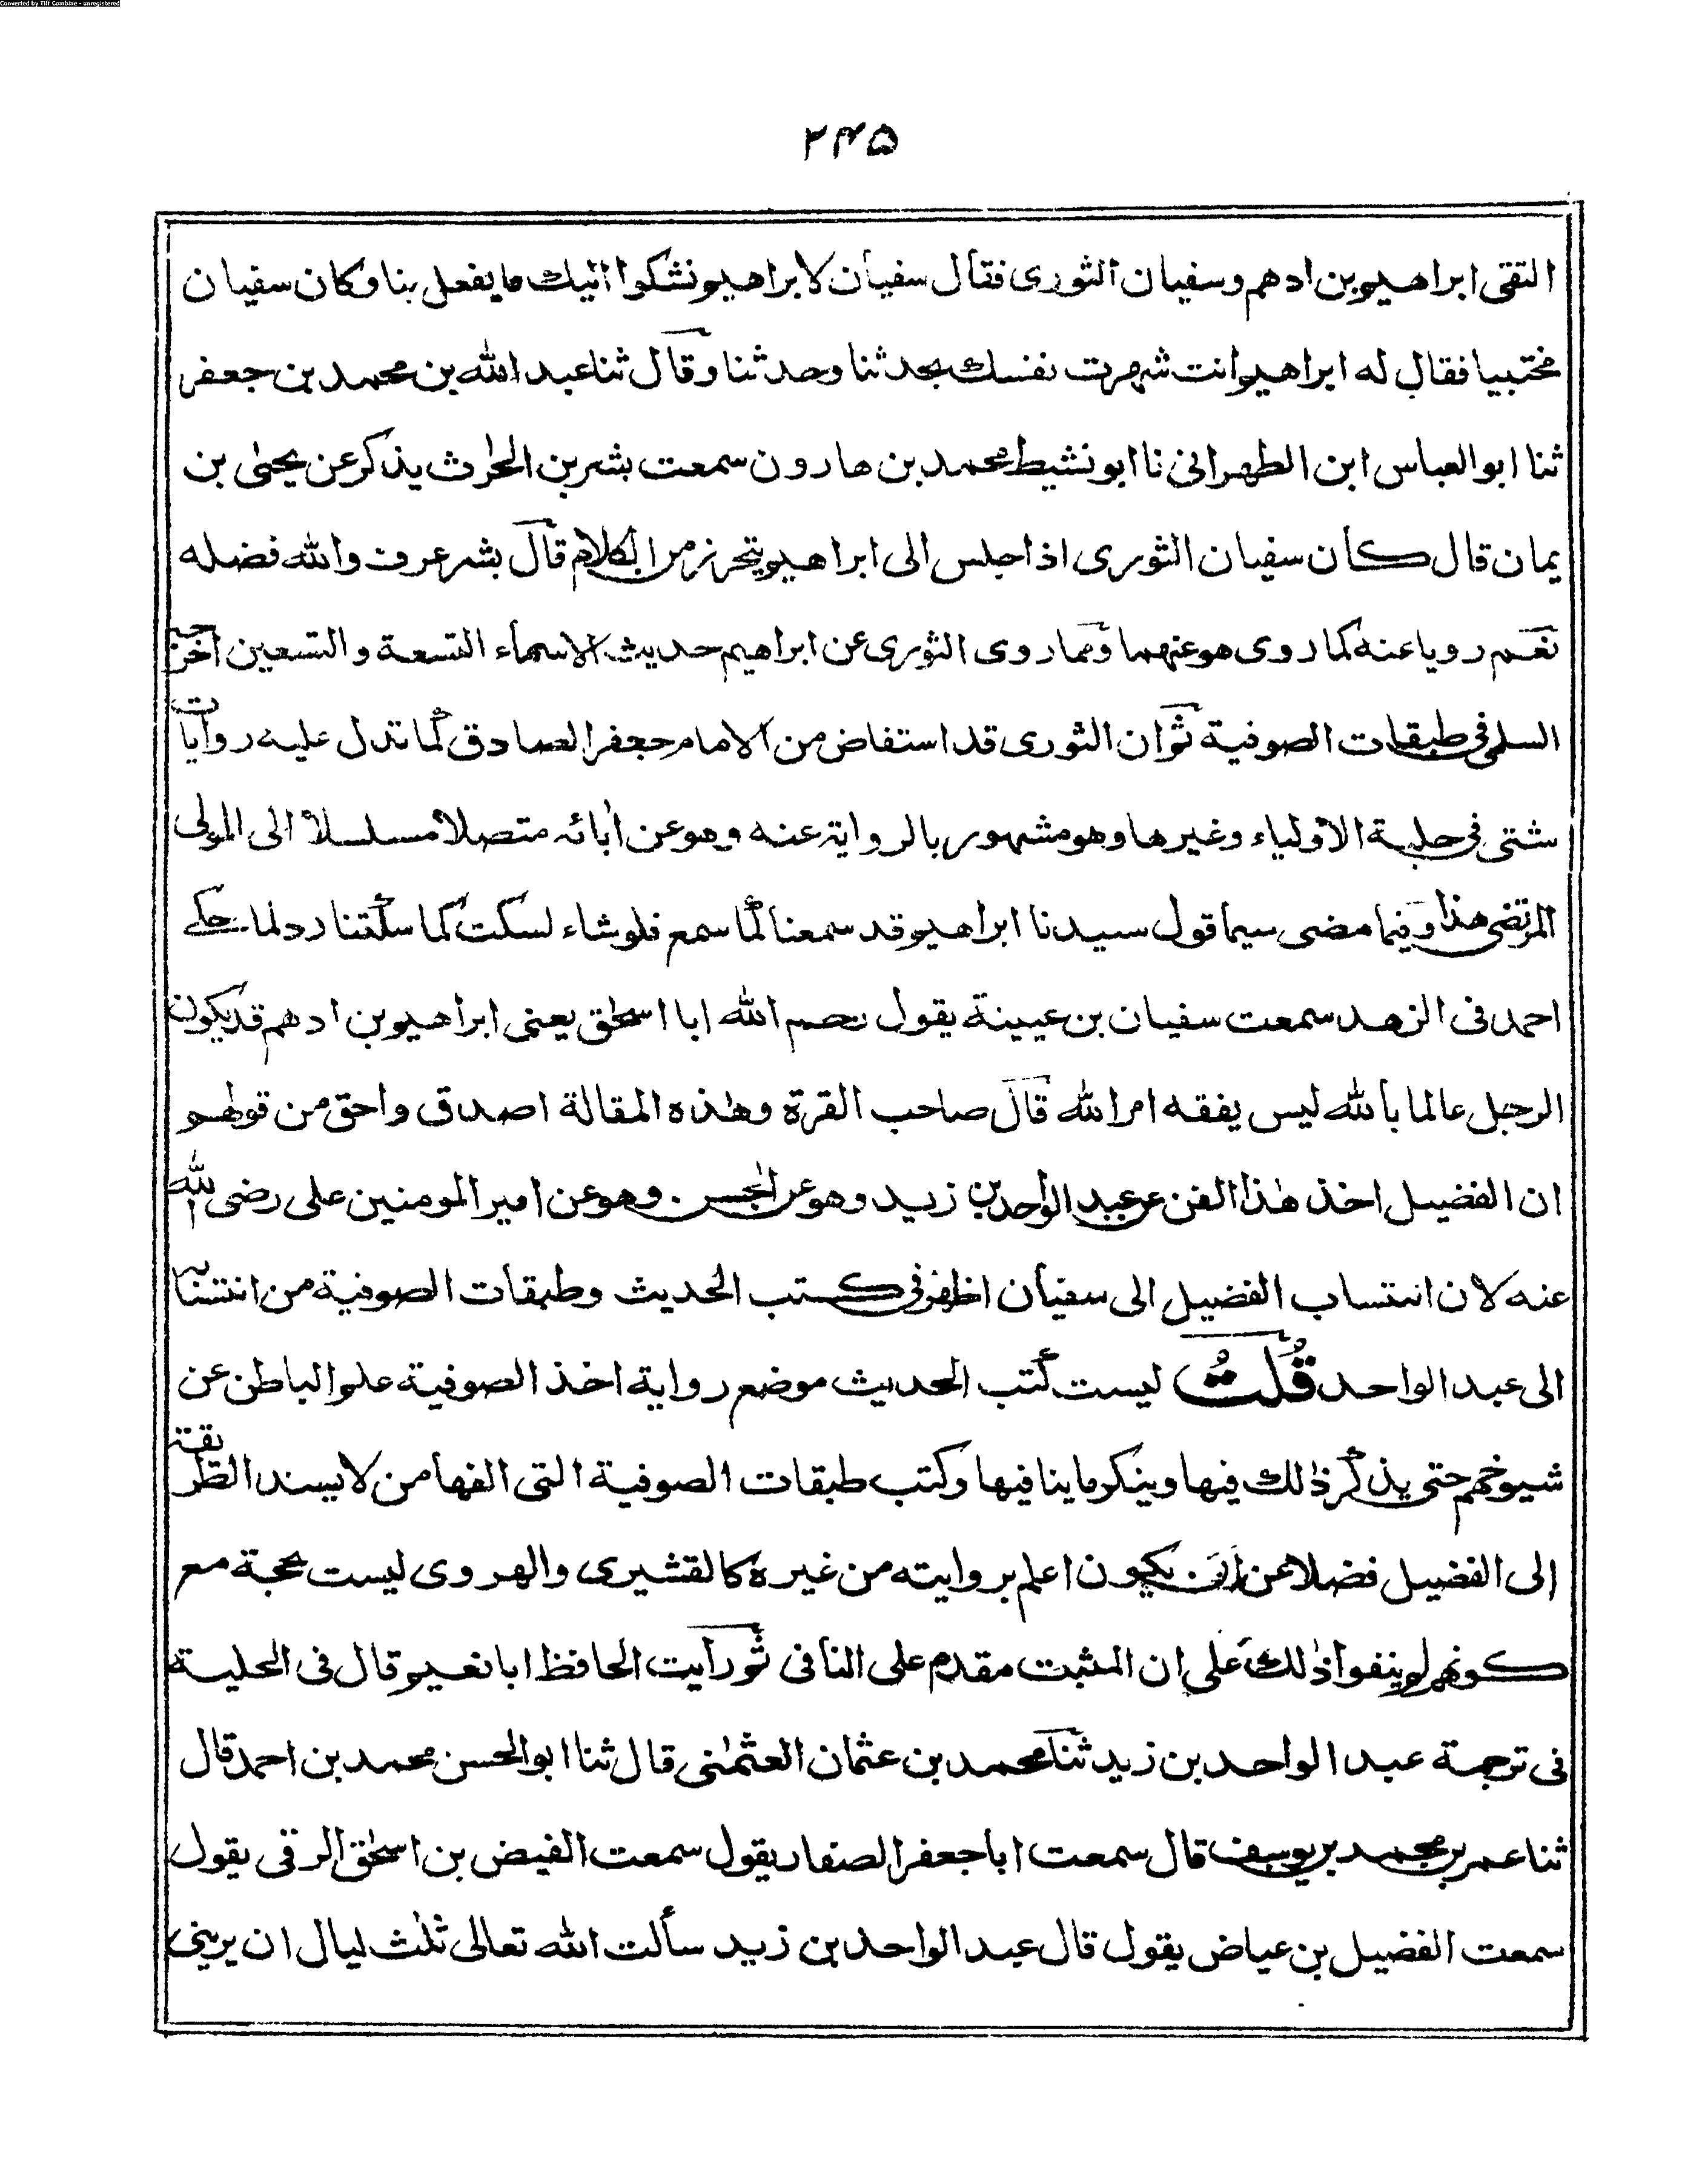 Converted by Tiff Combine - unregistered
۲۴۵
التقى ابراهيم بن ادهم وسفيان الثورى فقال سفيان لابراهيم نشكوا اليك ما يفعل بنا وكان سفيان
مختبيا فقال له ابراهيم انت شهرت نفسك بحدثنا وحدثنا وقال ثنا عبد الله بن محمد بن جعفر
ثنا ابو العباس ابن الطهرانى نا ابو نشيط محمد بن هارون سمعت بشر بن الحٰرث يذكر عن يحيىٰ بن
يمان قال كان سفيان الثورى اذا جلس الى ابراهيم يتحرز من الكلام قال بشر عرف والله فضله
نعم رويا عنه كما روى هو عنهما ومما روى الثورى عن ابراهيم حديث الاسماء التسعة والتسعين اخرجه
السلمى فى طبقات الصوفية ثم ان الثورى قد استفاض من الامام جعفر الصادق كما تدل عليه روايات
شتى فى حلية الاولياء وغيرها وهو مشهور بالرواية عنه وهو عن اٰبائه متصلا مسلسلا الى المولى
المرتضى هذا وفيما مضى سيما قول سيدنا ابراهيم قد سمعنا كما سمع فلو شاء لسكت كما سكتنا رد لما حكے
احمد فى الزهد سمعت سفيان بن عيينة يقول رحم الله ابا اسحٰق يعنى ابراهيم بن ادهم قد يكون
الرجل عالما بالله ليس يفقه امر الله قال صاحب القرة وهٰذه المقالة اصدق واحق من قولهم
ان الفضيل اخذ هٰذا الفن عن عبد الواحد بن زيد وهو عن الحسن وهو عن امير المومنين على رضى الله
عنه لان انتساب الفضيل الى سفيان اظهر فى كتب الحديث وطبقات الصوفية من انتسابه
الى عبد الواحد قُلتُ ليست كتب الحديث موضع رواية اخذ الصوفية علم الباطن عن
شيوخهم حتى يذكر ذٰلك فيها وينكر ما ينافيها وكتب طبقات الصوفية التى الفها من لا يسند الطريقة
الى الفضيل فضلا عن ان يكون اعلم بروايته من غيره كالقشيرى والهروى ليست بحجة مع
كونهم لم ينفوا ذٰلك على ان المثبت مقدم على النافى ثم رأيت الحافظ ابا نعيم قال فى الحلية
فى ترجمة عبد الواحد بن زيد ثنا محمد بن عثمان العثمٰنى قال ثنا ابو الحسن محمد بن احمد قال
ثنا عمر بن محمد بن يوسف قال سمعت ابا جعفر الصفار يقول سمعت الفيض بن اسحٰق الرقى يقول
سمعت الفضيل بن عياض يقول قال عبد الواحد بن زيد سألت الله تعالى ثلٰث ليال ان يرينى